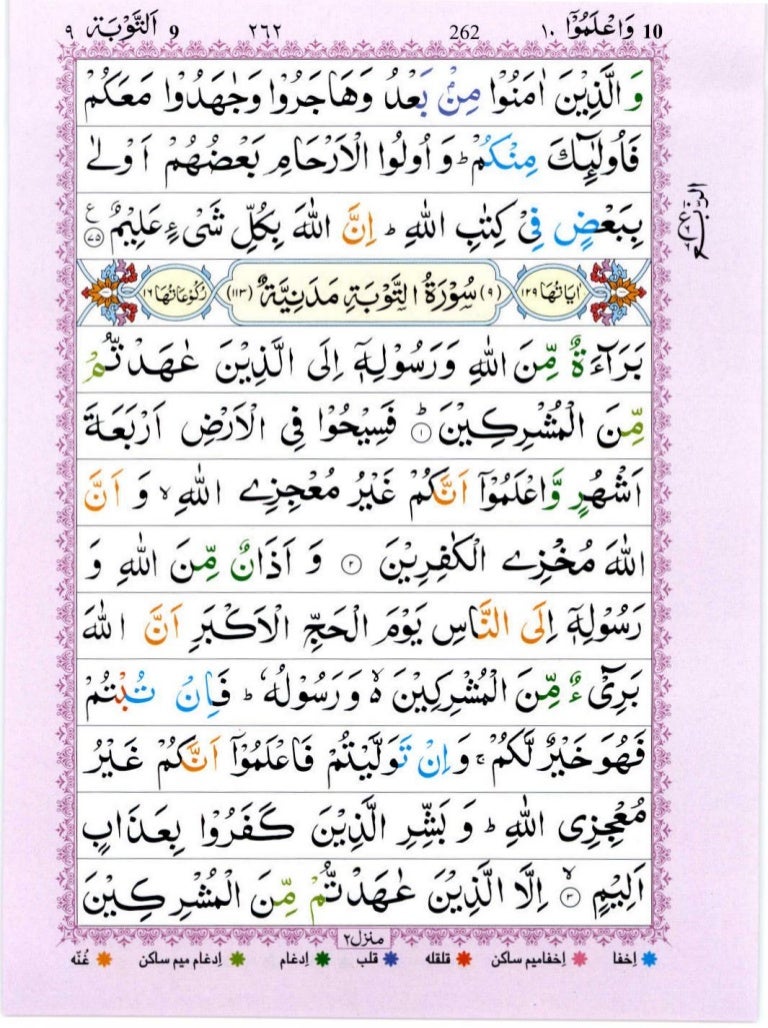 اَلتَّوْبَة ٩ 9 ٢٦٢ 262 وَاعْلَمُوْٓا ١٠ 10
وَالَّذِيْنَ اٰمَنُوْا مِنْۢ بَعْدُ وَهَاجَرُوْا وَجٰهَدُوْا مَعَكُمْ
فَاُولٰٓئِكَ مِنْكُمْ ؕ وَ اُولُوا الْاَرْحَامِ بَعْضُهُمْ اَوْلٰى
بِبَعْضٍ فِيْ كِتٰبِ اللّٰهِ ؕ اِنَّ اللّٰهَ بِكُلِّ شَيْءٍ عَلِيْمٌ ۧ ﴿٧٥﴾
الربع
اٰيَاتُهَا ١٢٩ (٩) سُوْرَةُ التَّوْبَةِ مَدَنِيَّةٌ (١١٣) رُكُوْعَاتُهَا ١٦
بَرَآءَةٌ مِّنَ اللّٰهِ وَرَسُوْلِهٖۤ اِلَى الَّذِيْنَ عٰهَدْتُّمْ
مِّنَ الْمُشْرِكِيْنَ ؕ ﴿١﴾ فَسِيْحُوْا فِي الْاَرْضِ اَرْبَعَةَ
اَشْهُرٍ وَّاعْلَمُوْۤا اَنَّكُمْ غَيْرُ مُعْجِزِي اللّٰهِ ۙ وَ اَنَّ
اللّٰهَ مُخْزِي الْكٰفِرِيْنَ ﴿٢﴾ وَ اَذَانٌ مِّنَ اللّٰهِ وَ
رَسُوْلِهٖۤ اِلَى النَّاسِ يَوْمَ الْحَجِّ الْاَكْبَرِ اَنَّ اللّٰهَ
بَرِيْٓءٌ مِّنَ الْمُشْرِكِيْنَ ۙ۬ وَ رَسُوْلُهٗ ؕ فَاِنْ تُبْتُمْ
فَهُوَ خَيْرٌ لَّكُمْ ۚ وَاِنْ تَوَلَّيْتُمْ فَاعْلَمُوْۤا اَنَّكُمْ غَيْرُ
مُعْجِزِي اللّٰهِ ؕ وَ بَشِّرِ الَّذِيْنَ كَفَرُوْا بِعَذَابٍ
اَلِيْمٍ ۙ ﴿٣﴾ اِلَّا الَّذِيْنَ عٰهَدْتُّمْ مِّنَ الْمُشْرِكِيْنَ
منزل ٢
اِخفا اِخفامیم ساکن قلقله قلب اِدغام اِدغام میم ساکن غُنّه